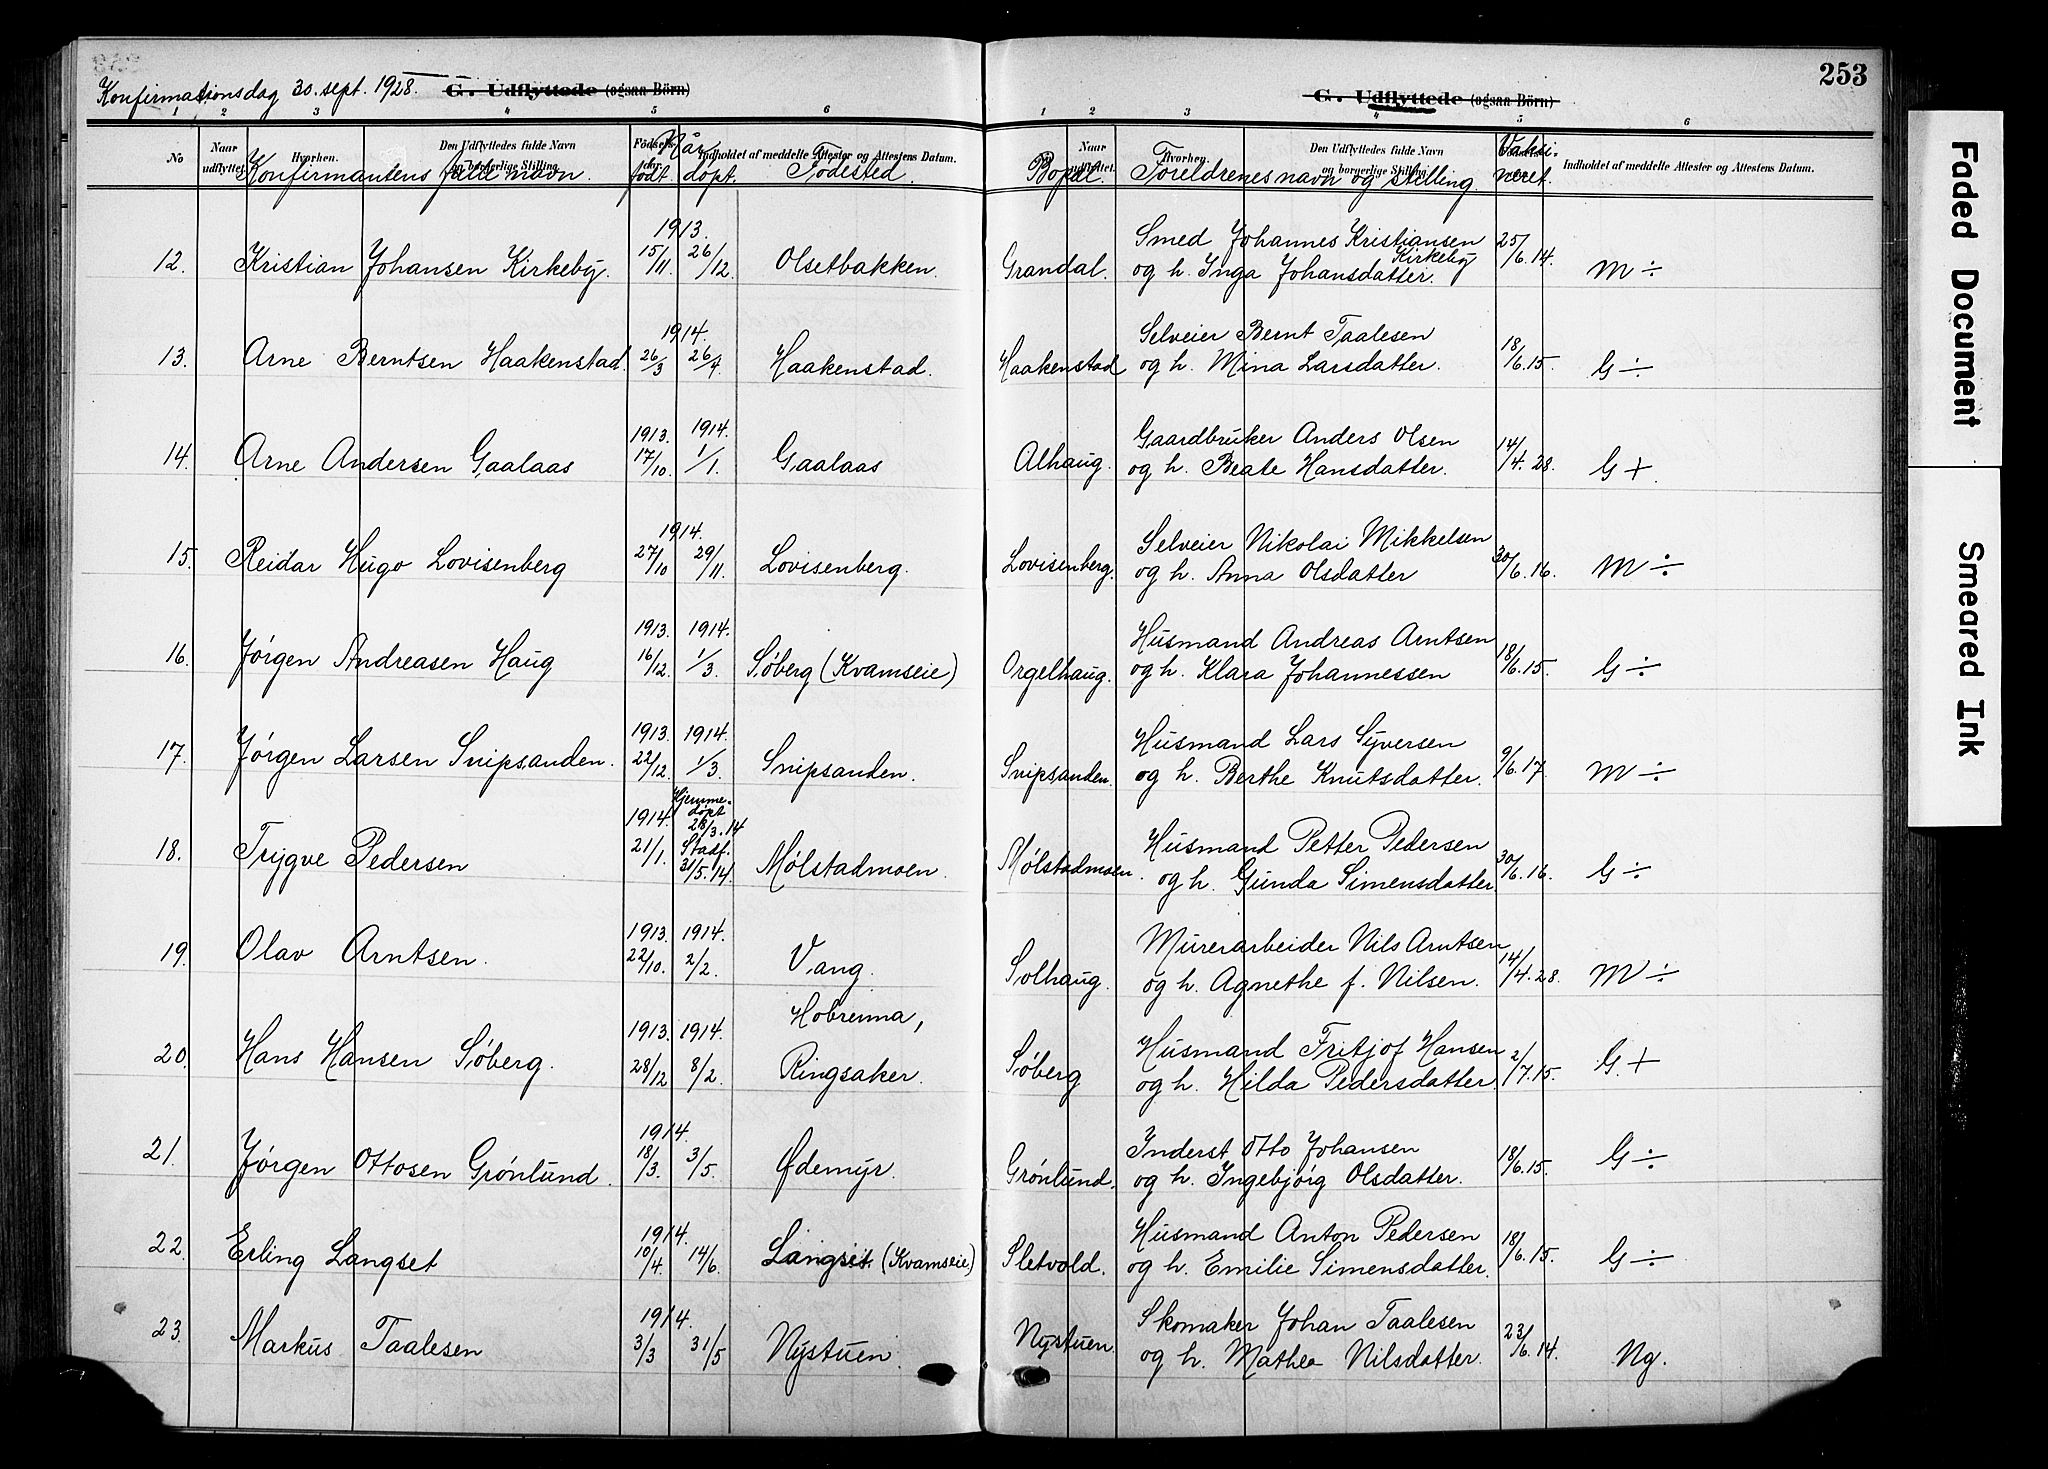 Konfirmationsdag 30. sept. 1928.
G. Udflyttede (ogsaa Börn)
G. Udflyttede (ogsaa Börn)
253
1 2 3 4 5 6 1 2 3 4 5 6
No
Naar udflyttet.
Hvorhen.
Den Udflyttedes fulde Navn og borgerlige Stilling.
Indholdet af meddelte Attester og Attestens Datum.
Konfirmantens fulde navn. Når født. døpt. Fødested.
Hvorhen.
Den Udflyttedes fulde Navn og borgerlige Stilling.
Indholdet af meddelte Attester og Attestens Datum.
Bopæl. Foreldrenes navn og stilling. Vaksineret.
1913. Smed Johannes Kristiansen Kirkeby
12. Kristian Johansen Kirkeby. 15/11 26/12. Olsetbakken. Grandal. og h. Inga Johansdatter. 25/6.14. M ÷
1914. Selveier Bernt Taalesen
13. Arne Berntsen Haakenstad. 26/3 26/4. Haakenstad. Haakenstad og h. Mina Larsdatter. 18/6.15. G ÷
1913. 1914. Gaardbruker Anders Olsen
14. Arne Andersen Gaalaas 17/10. 1/1. Gaalaas Alhaug. og h. Beate Hansdatter. 14/4.28. G +.
1914. Selveier Nikolai Mikkelsen
15. Reidar Hugo Lovisenberg 27/10 29/11. Lovisenberg. Lovisenberg. og h. Anna Olsdatter 30/6.16. M ÷
1913. 1914. Husmand Andreas Arntsen
16. Jørgen Andreasen Haug 16/12. 1/3. Søberg (Kvamseie) Orgelhaug. og h. Klara Johannessen 18/6.15. G ÷
1913. 1914. Husmand Lars Syversen
17. Jørgen Larsen Snipsanden. 22/12. 1/3. Snipsanden. Snipsanden. og h. Berthe Knutsdatter. 9/6.17. M ÷
1914. Hjemmedøpt 28/3.14 Husmand Petter Pedersen
18. Trygve Pedersen 21/1. Stadf. 31/5.14. Mølstadmoen. Mølstadmoen. og h. Gunda Simensdatter 30/6.16. G ÷
1913. 1914. Murerarbeider Nils Arntsen
19. Olav Arntsen. 22/10. 2/2. Vang. Solhaug. og h. Agnethe f. Nilsen. 14/4.28. M ÷
1913. 1914. Hobrenna, Husmand Fritjof Hansen
20. Hans Hansen Søberg. 28/12 8/2. Ringsaker. Søberg og h. Hilda Pedersdatter 2/7.15. G +
1914. Inderst Otto Johansen
21. Jørgen Ottosen Grønlund. 18/3. 3/5. Ødemyr. Grønlund. og h. Ingebjørg Olsdatter. 18/6.15. G ÷
1914. Husmand Anton Pedersen
22. Erling Langset 10/4. 14/6. Langset (Kvamseie) Sletvold. og h. Emilie Simensdatter. 18/6.15. G ÷
1914. Skomaker Johan Taalesen
23. Markus Taalesen 3/3 31/5 Nystuen. Nystuen. og h. Mathea Nilsdatter. 23/6.14. Ng.
Faded Document
Smeared Ink